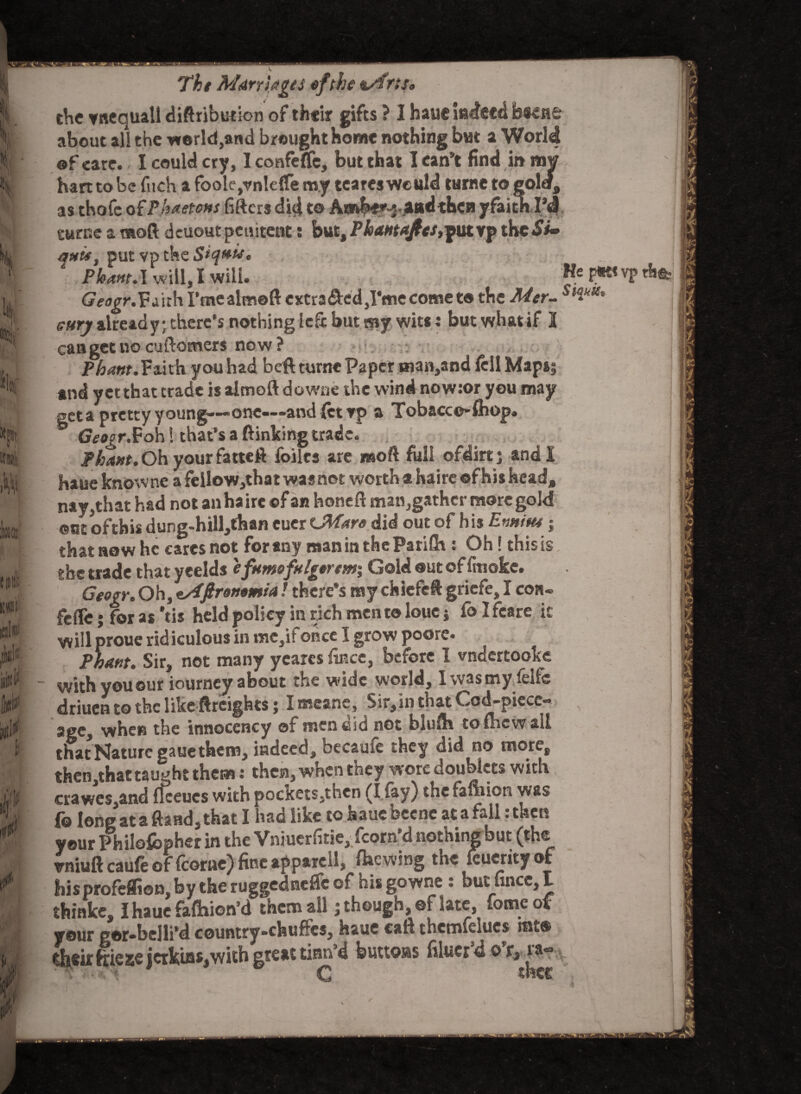 The Marriages of the Arts.
the vnequall distribution of their gifts? I haue indeed beene
about all the world, and brought home nothing but a World
of care. I could cry, I confesse, but that I can't find in my
hart to be such a foole, vnlesse my teares would turne to gold,
as those of Phaetons sisters did to Amber; and then yfaith I'd
turne a most deuout penitent: but, Phantastes, put vp the Si-
quis, put vp the Siquis.
Phant. I will, I will.
He puts vp the Siquis.
Geogr. Faith I'me almost extracted, I'me come to the Mer-
cury already; there's nothing left but my wits: but what if I
can get no customers now?
Phant. Faith you had best turne Paper man, and sell Maps;
and yet that trade is almost downe the wind now: or you may
get a pretty young---one---and set vp a Tobacco-shop.
Geogr. Foh! that's a stinking trade.
Phant. Oh your fattest soiles are most full of dirt; and I
haue knowne a fellow, that was not worth a haire of his head,
nay, that had not an haire of an honest man, gather more gold
out of this dung-hill, than euer Maro did out of his Ennius;
that now he cares not for any man in the Parish: Oh! this is
the trade that yeelds è fumo fulgorem; Gold out of smoke.
Geogr. Oh, Astronomia! there's my chiefest griefe, I con-
fesse; for as 'tis held policy in rich men to loue; so I feare it
will proue ridiculous in me, if once I grow poore.
Phant. Sir, not many yeares since, before I vndertooke
with you our iourney about the wide world, I was my selfe
driuen to the like streights; I meane, Sir, in that Cod-piece-
age, when the innocency of men did not blush to shew all
that Nature gaue them, indeed, because they did no more,
then, that taught them: then, when they wore doublets with
crawes, and sleeues with pockets, then (I say) the fashion was
so long at a stand, that I had like to haue beene at a fall: then
your Philosopher in the Vniuersitie, scorn'd nothing but (the
vniust cause of scorne) fine apparell, shewing the seuerity of
his profession, by the ruggednesse of his gowne: but since, I
thinke, I haue fashion'd them all; though, of late, some of
your gor-belli'd country-chuffes, haue cast themselues into
their frieze jerkins, with great tinn'd buttons siluer'd o'r, ra-
C
ther